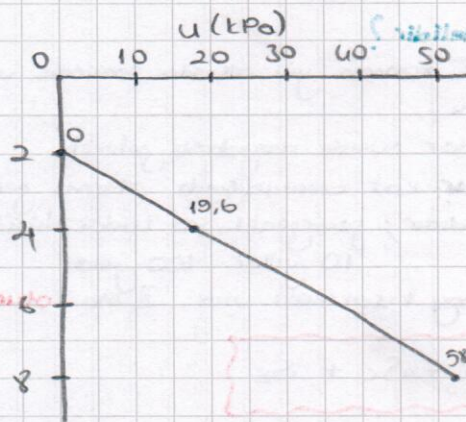 u (kPa)
0 10 20 30 40 50
0
2
19,6
4
6
58
8